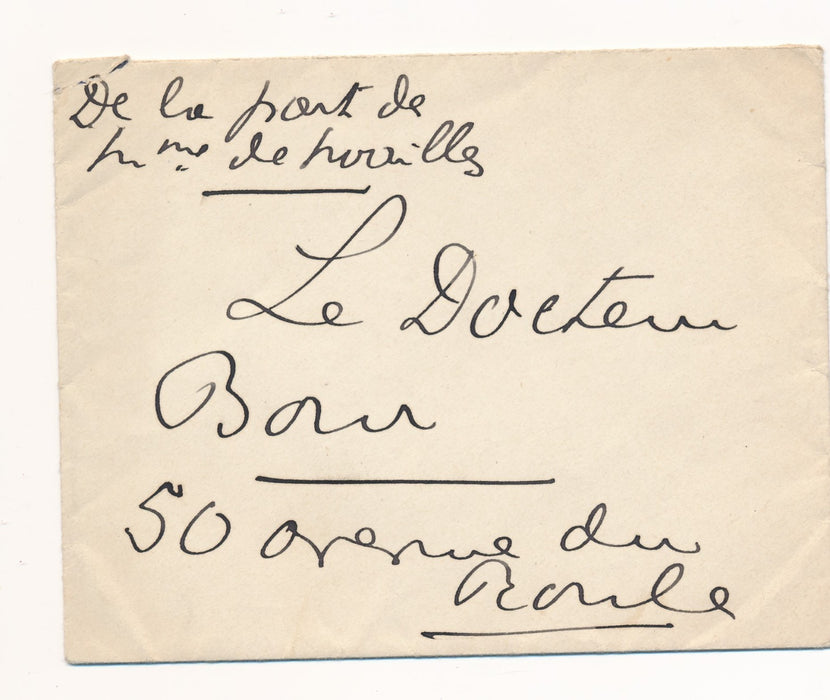 De la part de
Mme de Noailles
Le Docteur
Bour
50 avenue du
Roule